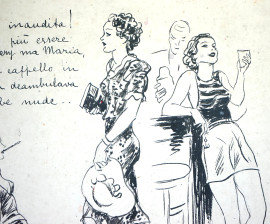 inaudita!
più essere
ma Maria,
cappello in
deambulava
nude...